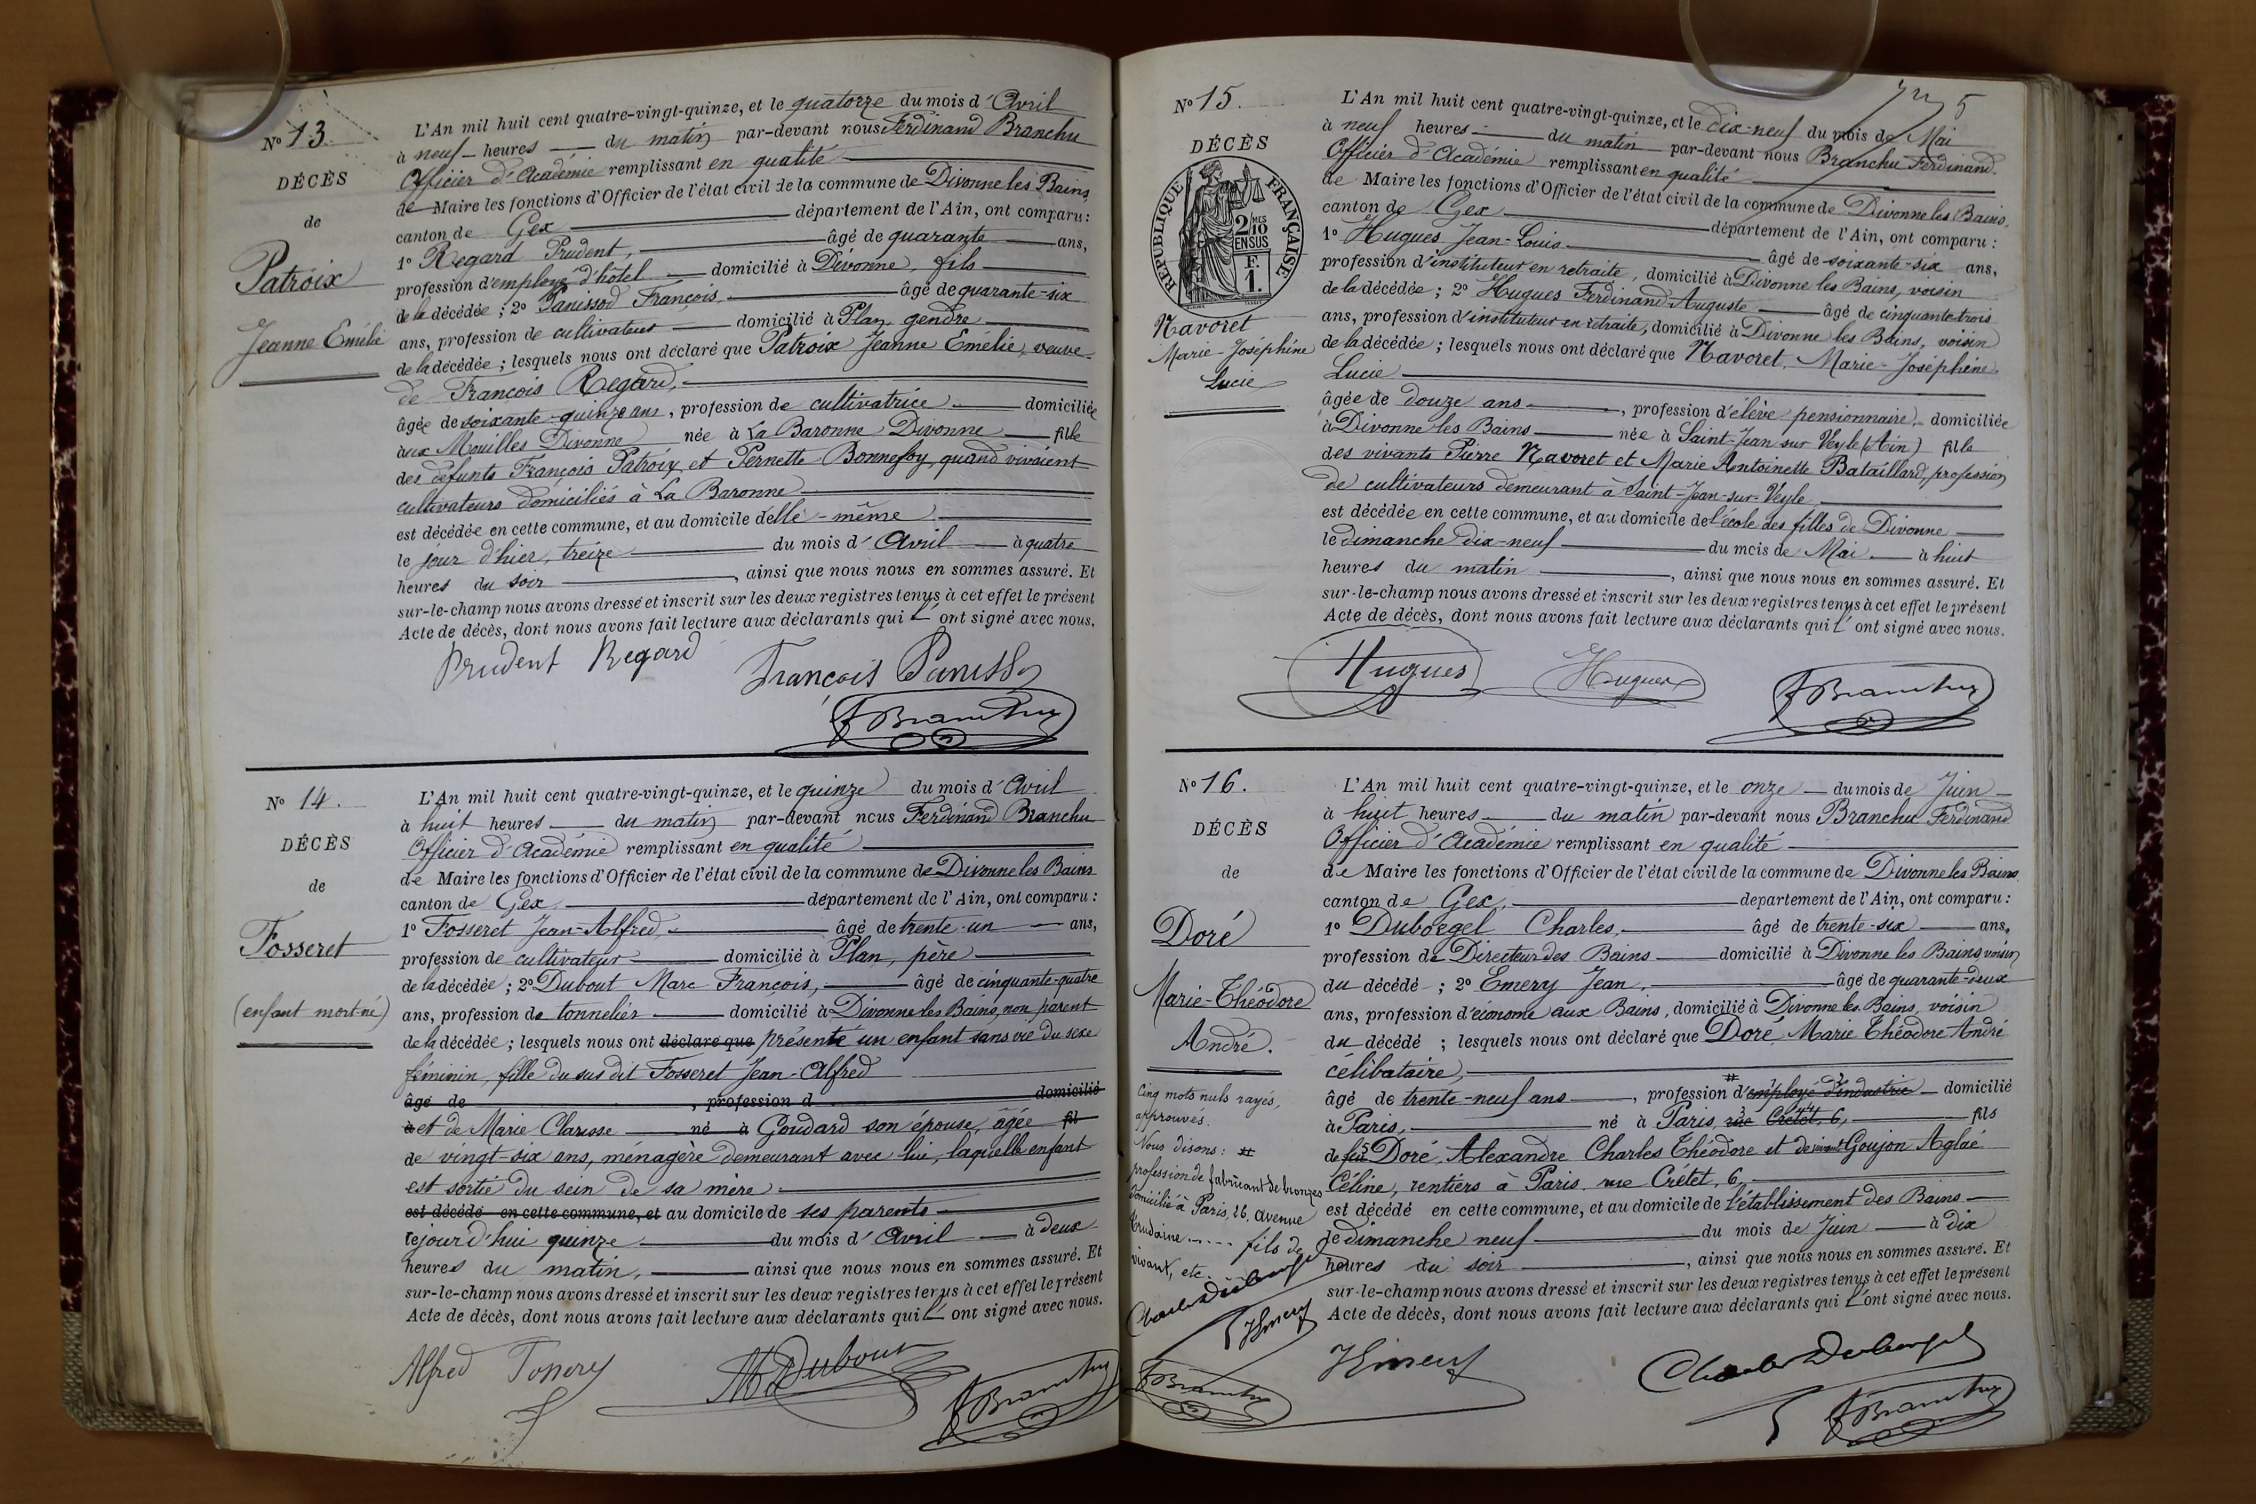 N° 13.
DÉCÈS
de
Patroix
Jeanne Emélie
L'An mil huit cent quatre-vingt-quinze, et le quatorze du mois d'Avril
à neuf heures du matin par-devant nous Ferdinand Branchu
Officier d'Académie remplissant en qualité
de Maire les fonctions d'Officier de l'état civil de la commune de Divonne les Bains
canton de Gex département de l'Ain, ont comparu :
1° Regard Prudent, âgé de quarante ans,
profession d'employé d'hôtel domicilié à Divonne, fils
de la décédée ; 2° Panissod François, âgé de quarante-six
ans, profession de cultivateur domicilié à Plan, gendre
de la décédée ; lesquels nous ont déclaré que Patroix Jeanne Emélie, veuve
de François Regard,
âgée de soixante-quinze ans, profession de cultivatrice domiciliée
aux Mouilles Divonne née à La Baronne Divonne fille
des défunts François Patroix et Pernette Bonnefoy, quand vivaient
cultivateurs domiciliés à La Baronne
est décédée en cette commune, et au domicile d'elle-même
le jour d'hier, treize du mois d'Avril à quatre
heures du soir, ainsi que nous nous en sommes assuré. Et
sur-le-champ nous avons dressé et inscrit sur les deux registres tenus à cet effet le présent
Acte de décès, dont nous avons fait lecture aux déclarants qui l'ont signé avec nous.
Prudent Regard François Panissod
FBranchu
N° 14.
DÉCÈS
de
Fosseret
(enfant mort-né)
L'An mil huit cent quatre-vingt-quinze, et le quinze du mois d'Avril
à huit heures du matin par-devant nous Ferdinand Branchu
Officier d'Académie remplissant en qualité
de Maire les fonctions d'Officier de l'état civil de la commune de Divonne les Bains
canton de Gex département de l'Ain, ont comparu :
1° Fosseret Jean-Alfred, âgé de trente-un ans,
profession de cultivateur domicilié à Plan, père
de la décédée ; 2° Dubout Marc François, âgé de cinquante-quatre
ans, profession de tonnelier domicilié à Divonne les Bains, non parent
de la décédée ; lesquels nous ont déclaré que présenté un enfant sans vie du sexe
féminin, fille du sus dit Fosseret Jean-Alfred
âgé de , profession d domicilié
à et de Marie Clarisse né à Goudard son épouse, âgée fil
de vingt-six ans, ménagère demeurant avec lui, laquelle enfant
est sortie du sein de sa mère
est décédé en cette commune, et au domicile de ses parents
le jour d'hui quinze du mois d'Avril à deux
heures du matin, ainsi que nous nous en sommes assuré. Et
sur-le-champ nous avons dressé et inscrit sur les deux registres tenus à cet effet le présent
Acte de décès, dont nous avons fait lecture aux déclarants qui l'ont signé avec nous.
Alfred MDubout
FBranchu
5
N° 15.
DÉCÈS
RÉPUBLIQUE FRANÇAISE
2/10 MES
EN SUS
F.
1.
Navoret
Marie-Joséphine
Lucie
L'An mil huit cent quatre-vingt-quinze, et le dix-neuf du mois de Mai
à neuf heures du matin par-devant nous Branchu Ferdinand
Officier d'Académie remplissant en qualité
de Maire les fonctions d'Officier de l'état civil de la commune de Divonne les Bains,
canton de Gex département de l'Ain, ont comparu :
1° Hugues Jean-Louis âgé de soixante-six ans,
profession d'instituteur en retraite, domicilié à Divonne les Bains, voisin
de la décédée ; 2° Hugues Ferdinand Auguste âgé de cinquante-trois
ans, profession d'instituteur en retraite, domicilié à Divonne les Bains, voisin
de la décédée ; lesquels nous ont déclaré que Navoret, Marie-Joséphine
Lucie
âgée de douze ans, profession d'élève pensionnaire, domiciliée
à Divonne les Bains née à Saint-Jean sur Veyle (Ain) fille
des vivants Pierre Navoret et Marie Antoinette Bataillard, profession
de cultivateurs demeurant à Saint-Jean-sur-Veyle
est décédée en cette commune, et au domicile de l'école des filles de Divonne
le dimanche dix-neuf du mois de Mai à huit
heures du matin, ainsi que nous nous en sommes assuré. Et
sur-le-champ nous avons dressé et inscrit sur les deux registres tenus à cet effet le présent
Acte de décès, dont nous avons fait lecture aux déclarants qui l'ont signé avec nous.
Hugues Hugues FBranchu
N° 16.
DÉCÈS
de
Doré
Marie-Théodore
André.
Cinq mots nuls rayés,
approuvés.
Nous disons : #
profession de fabricant de bronzes
domicilié à Paris, 26, avenue
Trudaine fils de
vivant, etc.
Charles Duborgel
JEmery
FBranchu
L'An mil huit cent quatre-vingt-quinze, et le onze du mois de Juin
à huit heures du matin par-devant nous Branchu Ferdinand
Officier d'Académie remplissant en qualité
de Maire les fonctions d'Officier de l'état civil de la commune de Divonne les Bains
canton de Gex, département de l'Ain, ont comparu :
1° Duborgel Charles, âgé de trente-six ans,
profession de Directeur des Bains domicilié à Divonne les Bains, voisin
du décédé ; 2° Emery Jean, âgé de quarante-deux
ans, profession d'économe aux Bains, domicilié à Divonne les Bains, voisin
du décédé ; lesquels nous ont déclaré que Doré, Marie Théodore André
célibataire,
âgé de trente-neuf ans, profession # d'employé d'industrie domicilié
à Paris, né à Paris, rue Crétet, 6, fils
de feu Doré, Alexandre Charles Théodore et de Goujon Aglaé
Céline, rentiers à Paris, rue Crétet, 6,
est décédé en cette commune, et au domicile de l'établissement des Bains
le dimanche neuf du mois de Juin à dix
heures du soir, ainsi que nous nous en sommes assuré. Et
sur-le-champ nous avons dressé et inscrit sur les deux registres tenus à cet effet le présent
Acte de décès, dont nous avons fait lecture aux déclarants qui l'ont signé avec nous.
JEmery Charles Duborgel
FBranchu